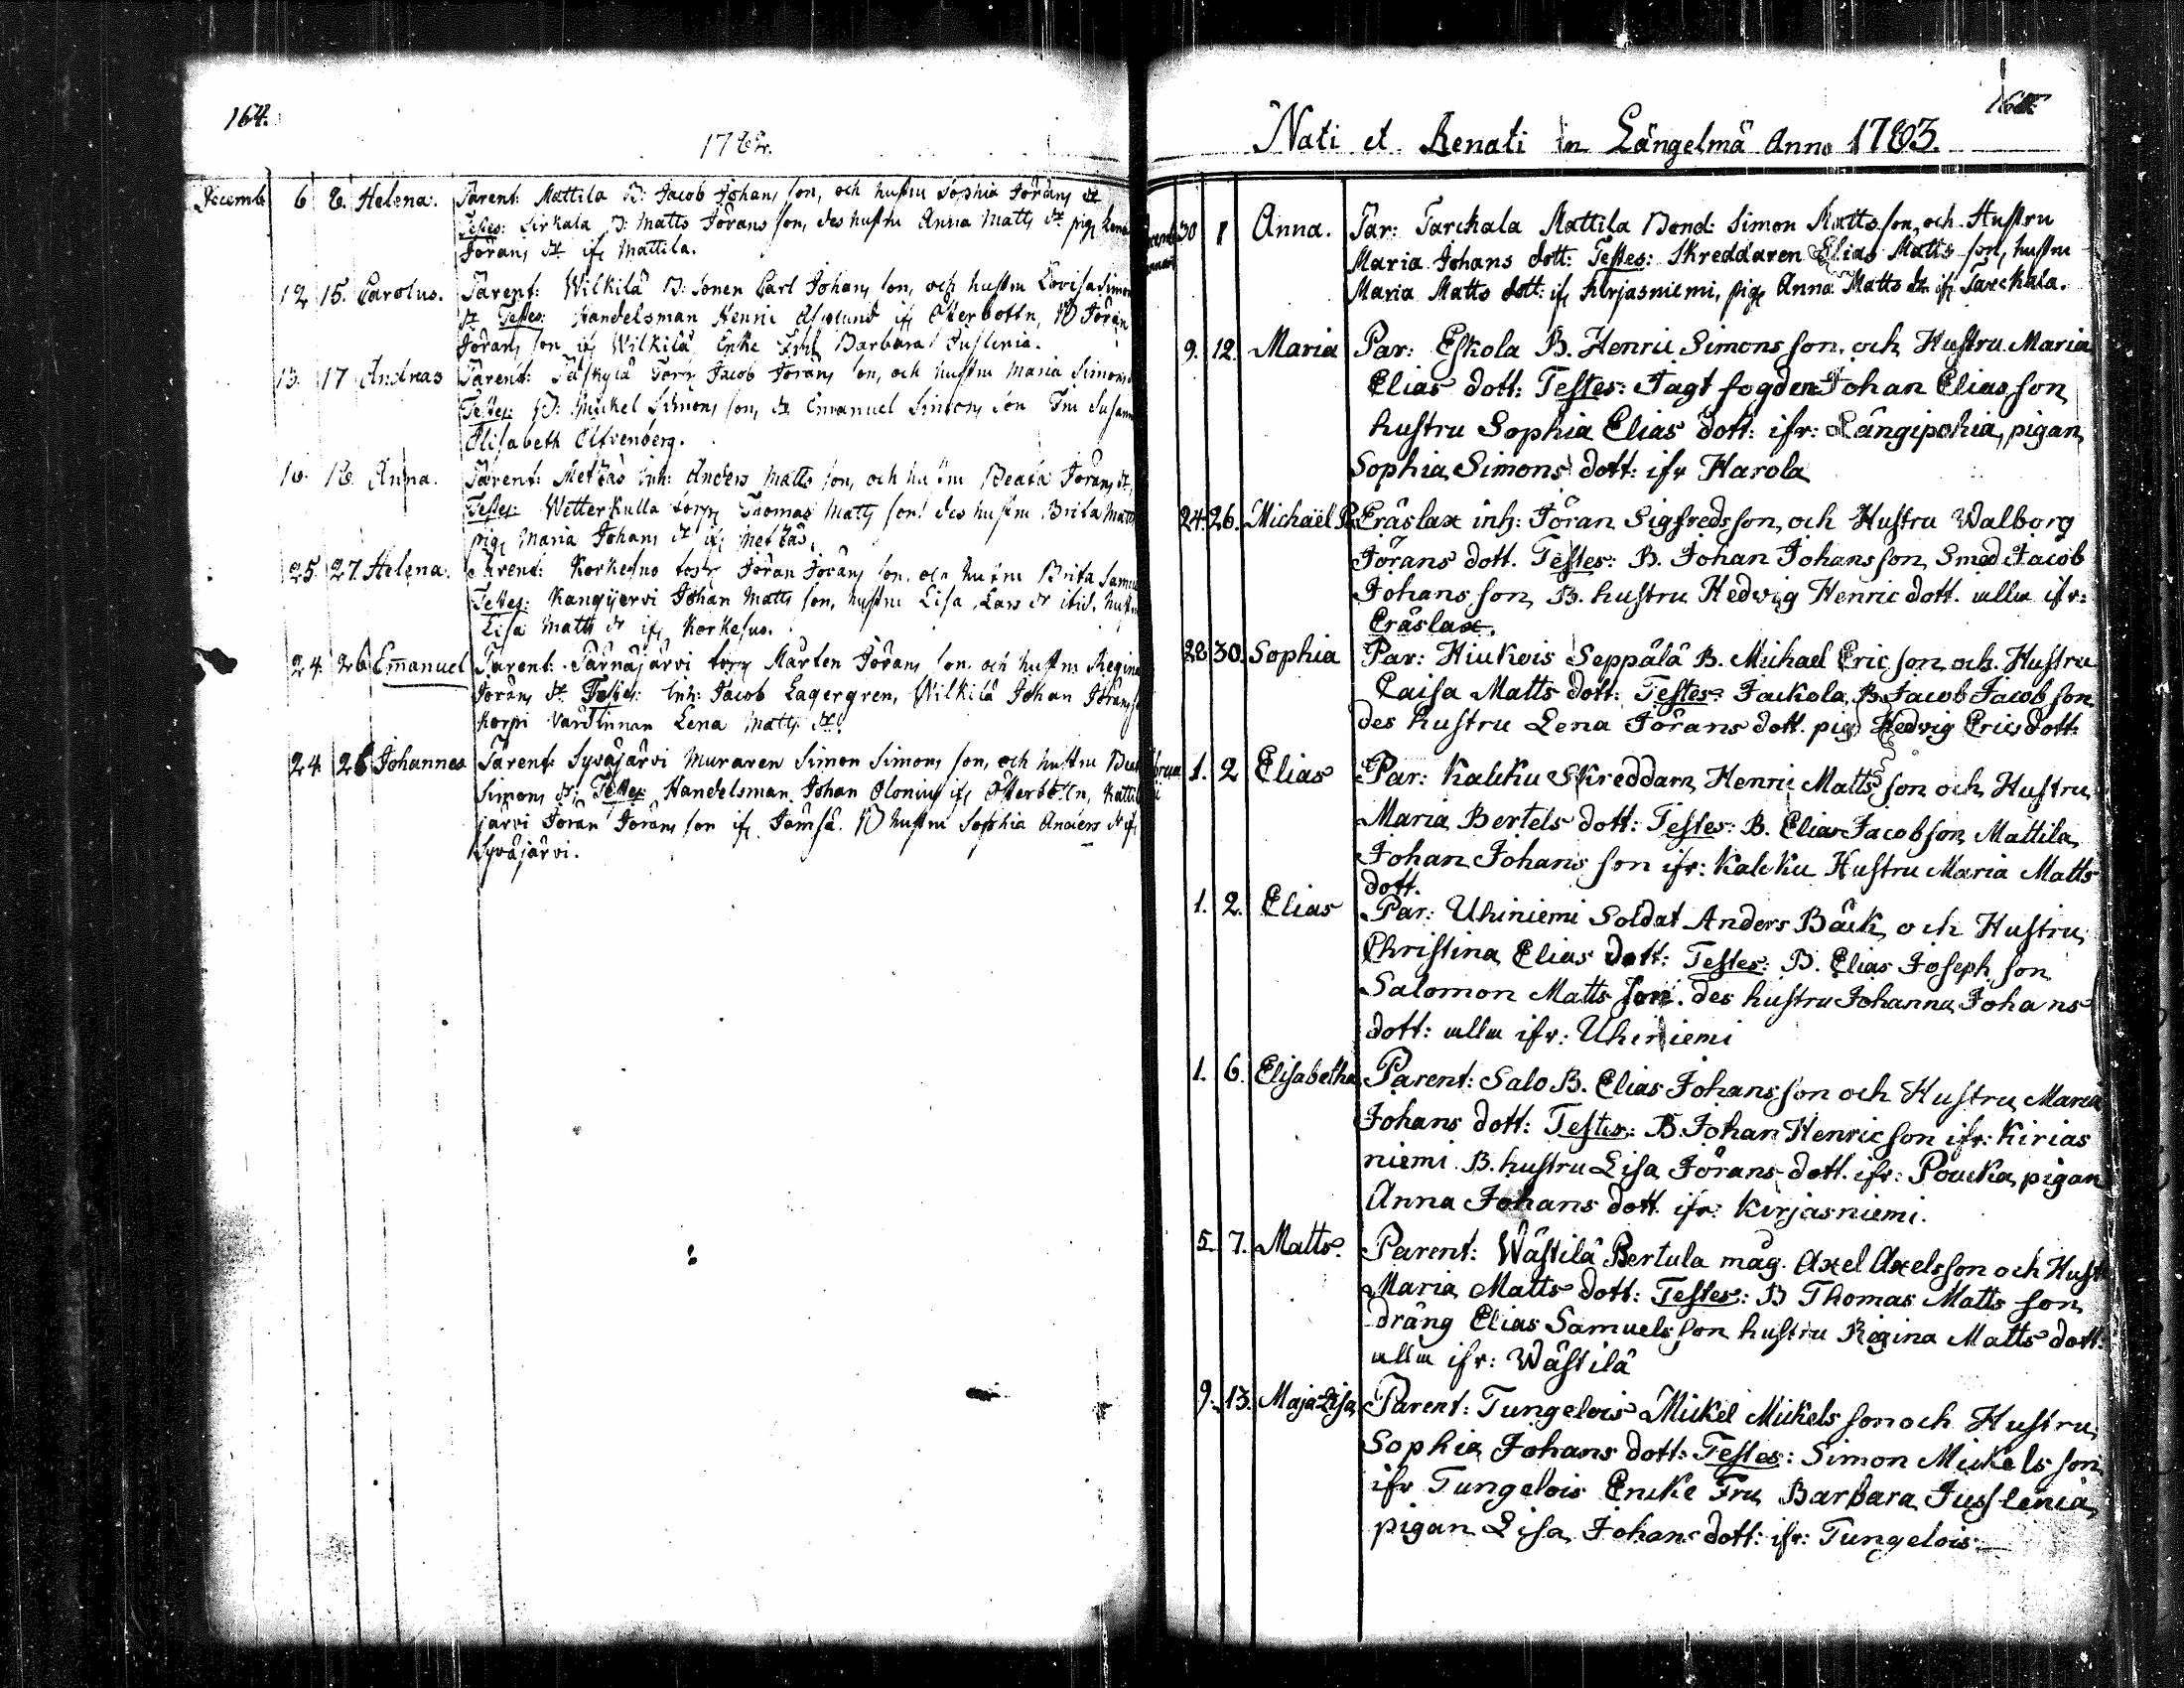 164.
1782.
Decemb 6 8. Helena. Parent: Mattila B: Jacob Johans son, och hustru Sophia Jörans dr
Testes: Sirkala B: Matts Jörans son, des hustru Anna Matts dr pig Lena
Jörans dr ifr Mattila.
12 15. Carolus. Parent: Wilkilä B: sonen Carl Johans son, och hustru Lovisa Simon
dr Testes: Handelsman Henric Asplund ifr Österbottn, B Jöran
Jörans son ifr Wilkilä Enke Fru Barbara Juslenia.
13. 17 Andreas Parent: Torp Jacob Jörans son, och hustru Maria Simons
Testes: B: Mickel Simons son, dr Emanuel Simons son Fru Susann
Elisabeth
16. 18. Anna. Parent: Metzäs inh: Anders Matts son, och hustru Beata Jörans dr,
Testes: Wetterkulla torp Thomas Matts son! des hustru Brita Matts
pig Maria Johans dr ifr Metzäs.
25. 27. Helena. Parent: Korkesuo torp Jöran Jörans son. och hustru Brita Samu
Testes: Kangijervi Johan Matts son, hustru Lisa Lars dr ibid. hustru
Lisa Matts dr ifr Korkesuo.
24. 26 Emanuel Parent: Särnäjärvi torp Mårten Jörans son. och hustru Regina
Jörans dr Testes: Inh: Jacob Lagergren, Wilkilä Johan Jörans s
Korpi värdinnan Lena Matts dr!
24. 26 Johannes Parent: Syväjärvi Muraren Simon Simons son, och hustru Beat
Simons dr; Testes: Handelsman Johan Olonius ifr Österbottn, Kattil
järvi Jöran Jörans son ifr Jämsä. B hustru Sophia Anders dr ifr
Syväjärvi.
Nati et Renati in Längelmä Anno 1783.
30 1 Anna. Par: Tarckala Mattila Bond: Simon Matts son, och Hustru
Maria Johans dott: Testes: Skreddaren Elias Matts son, hustru
Maria Matts dott: ifr Kirjasniemi, pig Anna Matts dr ifr Tarckala.
9. 12. Maria Par: Eskola B. Henric Simons son. och Hustru Maria
Elias dott: Testes: Jagt fogden Johan Elias son
hustru Sophia Elias dott: ifr: Längipohia, pigan
Sophia Simons dott: ifr Harola
24. 26. Michaël Pa: Eräslax inh: Jöran Sigfredsson, och Hustru Walborg
Jörans dott. Testes: B. Johan Johans son, Smed Jacob
Johans son, B. hustru Hedvig Henric dott. alla ifr:
Eräslax.
28 30. Sophia Par: Hiukois Seppälä B. Michael Eric son och. Hustru
Caisa Matts dott: Testes: Jackola B. Jacob Jacob son
des hustru Lena Jörans dott. pig Hedvig Erics dott:
1. 2 Elias Par: Kalcku Skreddarn, Henric Matts son och Hustru
Maria Bertels dott: Testes: B. Elias Jacobson, Mattila
Johan Johans son ifr: Kalcku Hustru Maria Matts
dott.
1. 2. Elias Par: Uhiniemi Soldat Anders Bäck, och Hustru
Christina Elias dott: Testes: B. Elias Joseph son
Salomon Matts son. des hustru Johanna Johans
dott: alla ifr: Uhiniemi
1. 6. Elisabetha Parent: Salo B. Elias Johansson och Hustru Maria
Johans dott: Testes: B. Johan Henric son ifr: Kirias
niemi. B. hustru Lisa Jörans dott. ifr: Poucka, pigan
Anna Johans dott ifr: Kirjasniemi.
5. 7. Matts. Parent: Wästilä Bertula måg. Axel Axelsson och Hust
Maria Matts dott: Testes: B Thomas Matts son
dräng Elias Samuelsson hustru Regina Matts dott:
alla ifr: Wästilä
9. 13. Maja Lisa Parent: Tungelois Mickel Mickels son och Hustru
Sophia Johans dott: Testes: Simon Mickels son
ifr Tungelois Encke Fru Barbara Juslenia,
pigan Lisa Johans dott: ifr: Tungelois.